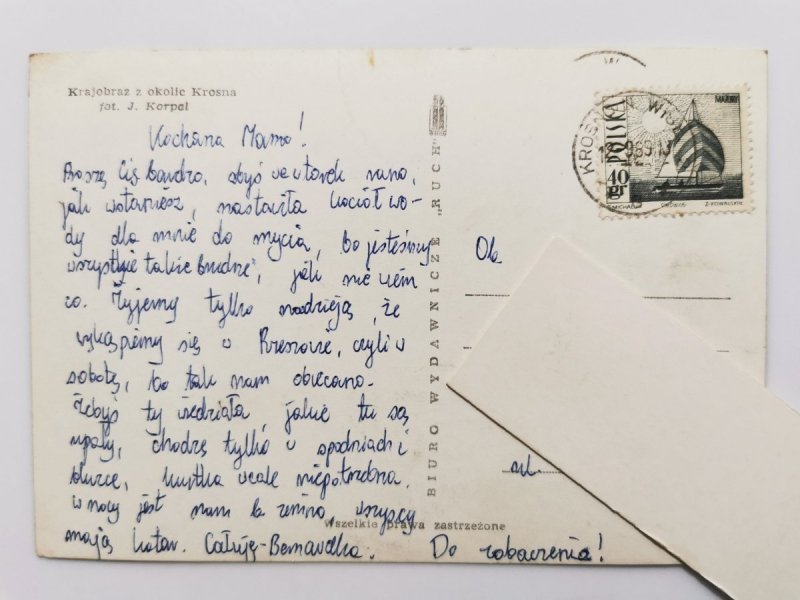 Krajobraz z okolic Krosna
fot. J. Korpal
Kochana Mamo!
Proszę Cię bardzo, abyś we wtorek rano,
jak wstaniesz, nastawiła kocioł wo-
dy dla mnie do mycia, bo jesteśmy
wszystkie takie brudne, jak nie wiem
co. Żyjemy tylko nadzieją, że
wykąpiemy się w Rzeszowie, czyli w
sobotę, bo tak nam obiecano.
Żebyś ty wiedziała, jakie tu są
upały, chodzę tylko w spodniach i
bluzce, kurtka wcale niepotrzebna.
W nocy jest nam b. zimno, wszyscy
mają katar. Całuję - Bernadetka. Do zobaczenia!
Wszelkie prawa zastrzeżone
BIURO WYDAWNICZE „RUCH"
POLSKA
40 gr
Ob.
ul.